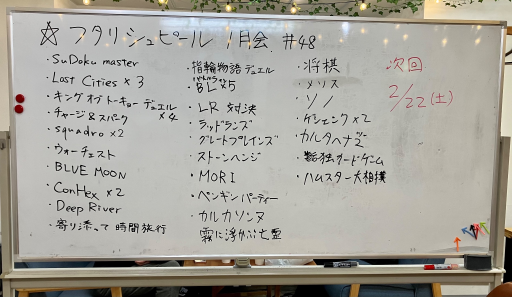 ☆ フタリシュピール 1月会 #48
・SuDoku master
・Lost Cities × 3
・キングオブトーキョー デュエル
・チャージ&スパーク × 4
・squadro × 2
・ウォーチェスト
・BLUE MOON
・ConHex × 2
・Deep River
・寄り添って時間旅行
・指輪物語デュエル
・LR 対決
・ラッドランズ
・グレートプレインズ
・ストーンヘンジ
・MORI
・ペンギンパーティー
・カルカソンヌ
霧に浮かぶ亡霊
・将棋
・メソス
・ソノ
・ケシェンク × 2
・カルタヘナ2
・数独カードゲーム
・ハムスター大相撲
次回
2/22(土)